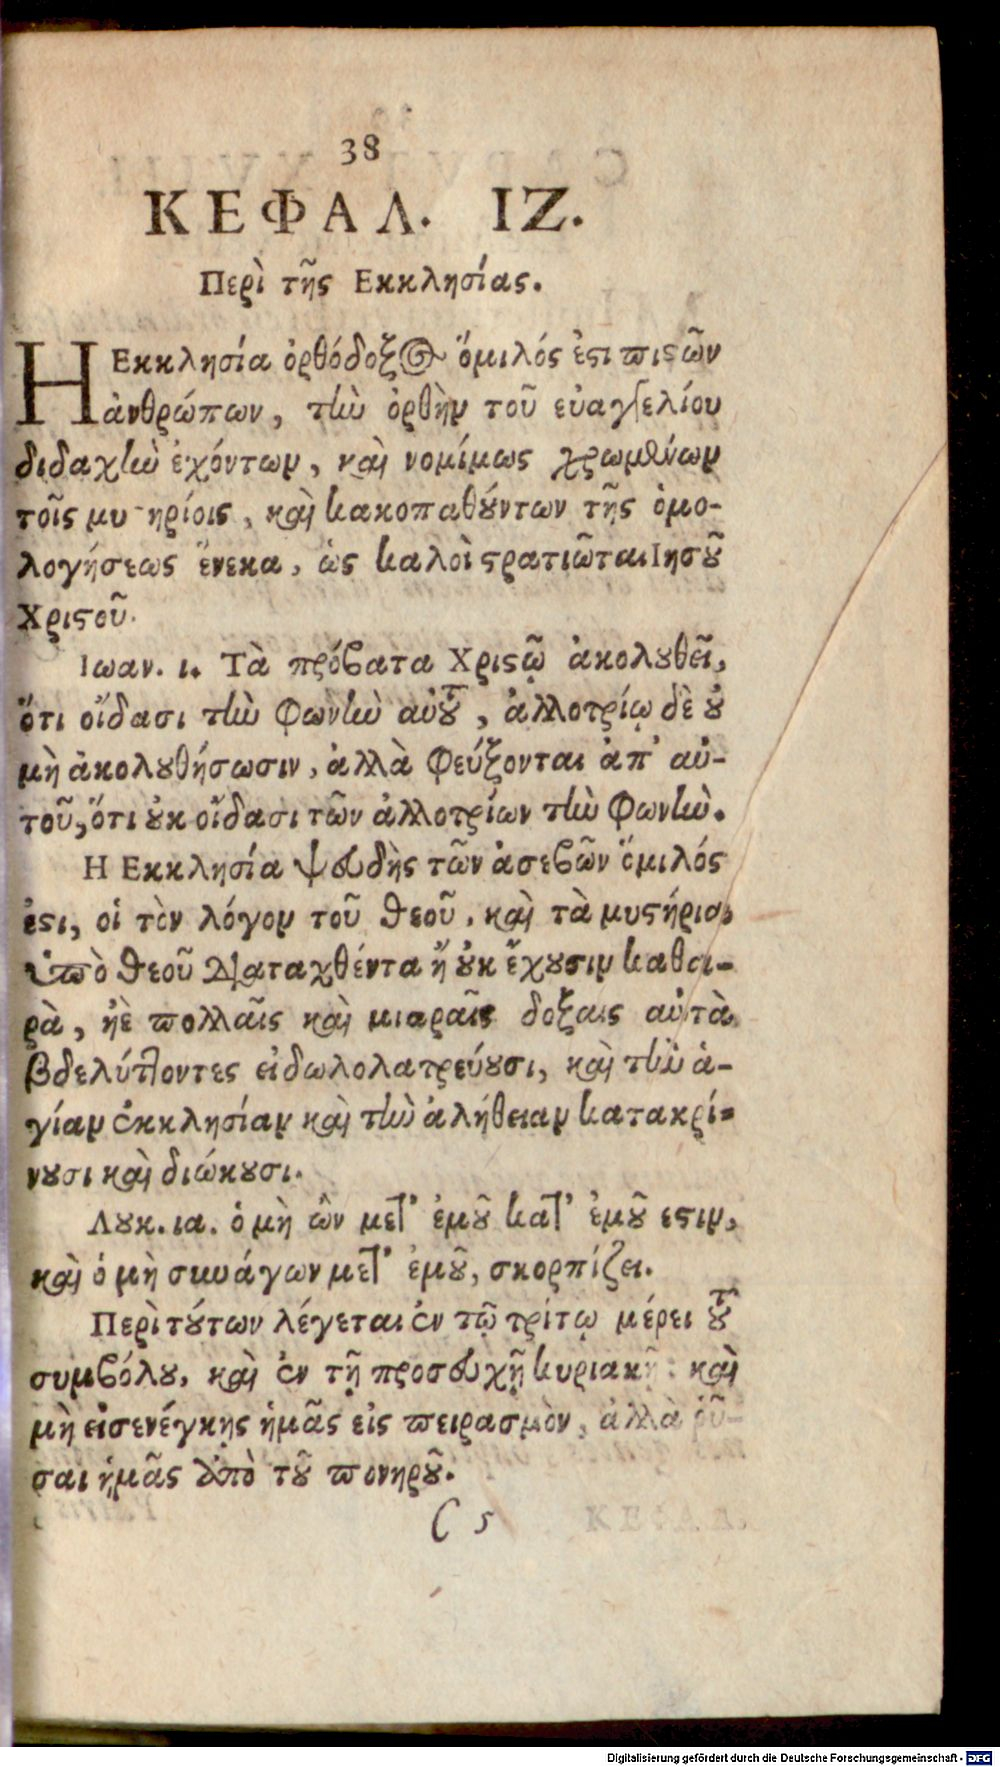 38
ΚΕΦΑΛ. ΙΖ.
Περὶ τῆς Εκκλησίας.
Η Εκκλησία ὀρθόδοξος ὅμιλός ἐστι πιστῶν
ἀνθρώπων, τὴν ὀρθὴν τοῦ εὐαγγελίου
διδαχὴν ἐχόντων, καὶ νομίμως χρωμένων
τοῖς μυστηρίοις, καὶ κακοπαθούντων τῆς ὁμο-
λογήσεως ἕνεκα, ὡς καλοὶ στρατιῶται Ιησοῦ
Χριστοῦ.
Ιωαν. ι. Τὰ πρόβατα Χριστῷ ἀκολουθεῖ,
ὅτι οἴδασι τὴν φωνὴν αὐτοῦ, ἀλλοτρίῳ δὲ οὐ
μὴ ἀκολουθήσωσιν, ἀλλὰ φεύξονται ἀπ' αὐ-
τοῦ, ὅτι οὐκ οἴδασι τῶν ἀλλοτρίων τὴν φωνὴν.
Η Εκκλησία ψευδὴς τῶν ἀσεβῶν ὅμιλός
ἐστι, οἱ τὸν λόγον τοῦ θεοῦ, καὶ τὰ μυστήρια
ὑπὸ θεοῦ διαταχθέντα ἢ οὐκ ἔχουσιν καθα-
ρὰ, ἠὲ πολλαῖς καὶ μιαραῖς δοξαις αὐτὰ
βδελύττοντες εἰδωλολατρεύουσι, καὶ τὴν ἁ-
γίαν ἐκκλησίαν καὶ τὴν ἀλήθειαν κατακρί-
νουσι καὶ διώκουσι.
Λουκ. ια. ὁ μὴ ὢν μετ' ἐμοῦ κατ' ἐμοῦ εστιν,
καὶ ὁ μὴ συνάγων μετ' ἐμοῦ, σκορπίζει.
Περὶ τούτων λέγεται ἐν τῷ τρίτῳ μέρει τοῦ
συμβόλου, καὶ ἐν τῇ προσευχῇ κυριακῇ: καὶ
μὴ εἰσενέγκῃς ἡμᾶς εἰς πειρασμὸν, ἀλλὰ ῥῦ-
σαι ἡμᾶς ἀπὸ τοῦ πονηροῦ.
C 5
Digitalisierung gefördert durch die Deutsche Forschungsgemeinschaft - DFG